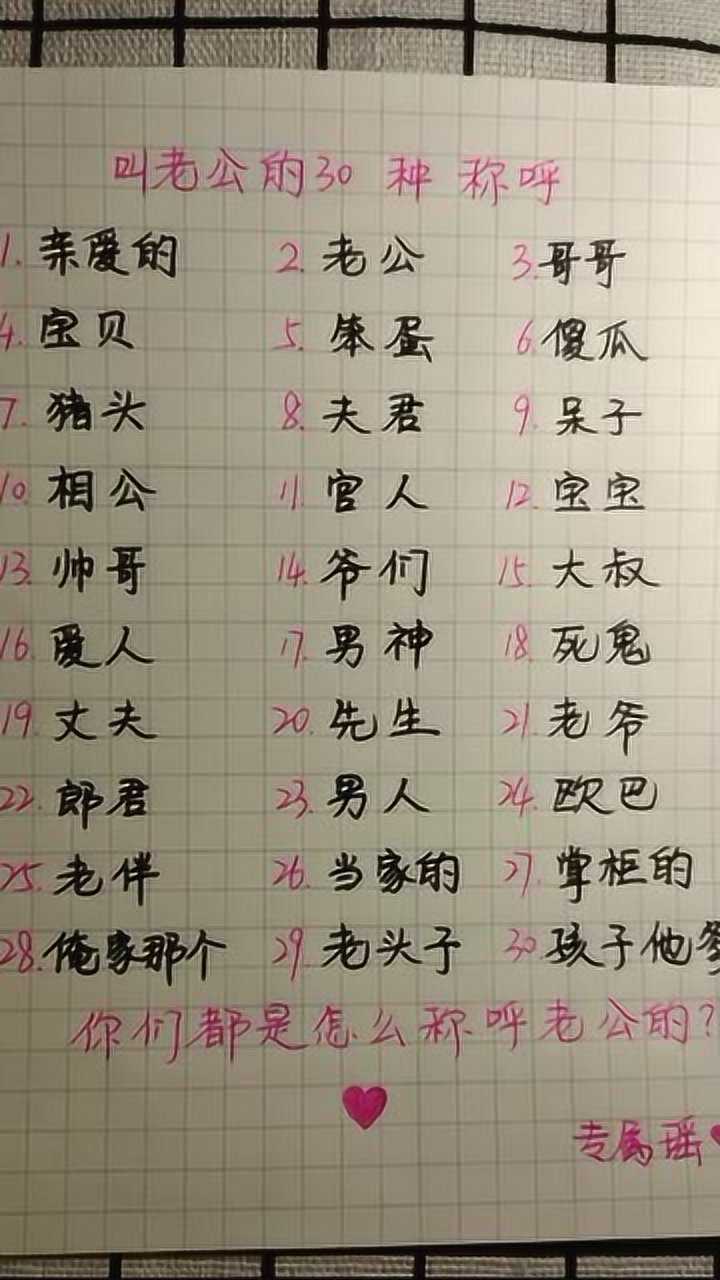 叫老公的30种称呼
1.亲爱的 2.老公 3.哥哥
4.宝贝 5.笨蛋 6.傻瓜
7.猪头 8.夫君 9.呆子
10.相公 11.官人 12.宝宝
13.帅哥 14.爷们 15.大叔
16.爱人 17.男神 18.死鬼
19.丈夫 20.先生 21.老爷
22.郎君 23.男人 24.欧巴
25.老伴 26.当家的 27.掌柜的
28.俺家那个 29.老头子 30孩子他爹
你们都是怎么称呼老公的?
专属瑶